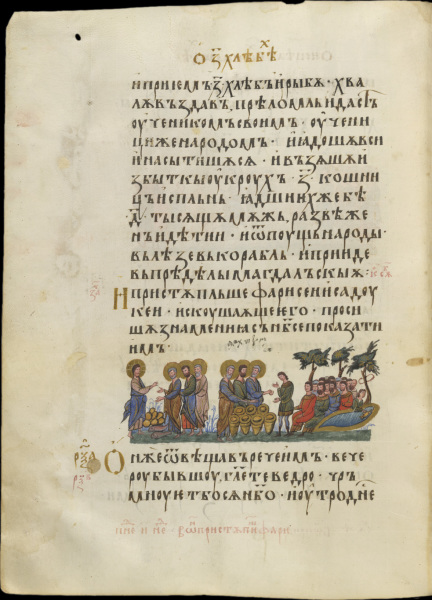 О з҃ хлѣбѣхъ
и приемъ з҃ хлѣбъ и рыбѫ · хва
лѫ въздавъ · прѣломль и дастъ
оученикомъ своимъ · оучени
ци же народомъ · и ꙗдошѫ вси
и насытишѧсѧ · и възѧшѧ и
збыткы оукроухъ · з҃ · кошни
цъ исплънь · ꙗдшиих же бѣ
д҃ · тысѧщѧ мѫжь, развѣ же
нъ и дѣтии · и ѿпоущь народы ·
вълѣзе въ корабль · и прииде
въ прѣдѣлы магдалъскыѫ ·
И пристѫпльше фарисеи и садоу
кеи · искоушаѫще его · проси
шѧ знамениа съ нб҃се показати
имъ ·
Онже ѿвѣщавъ рече имъ · вече
роу бывшоу, гл҃ете ведро · чръ
мноует бо сѧ нб҃о · и оутро дн҃е